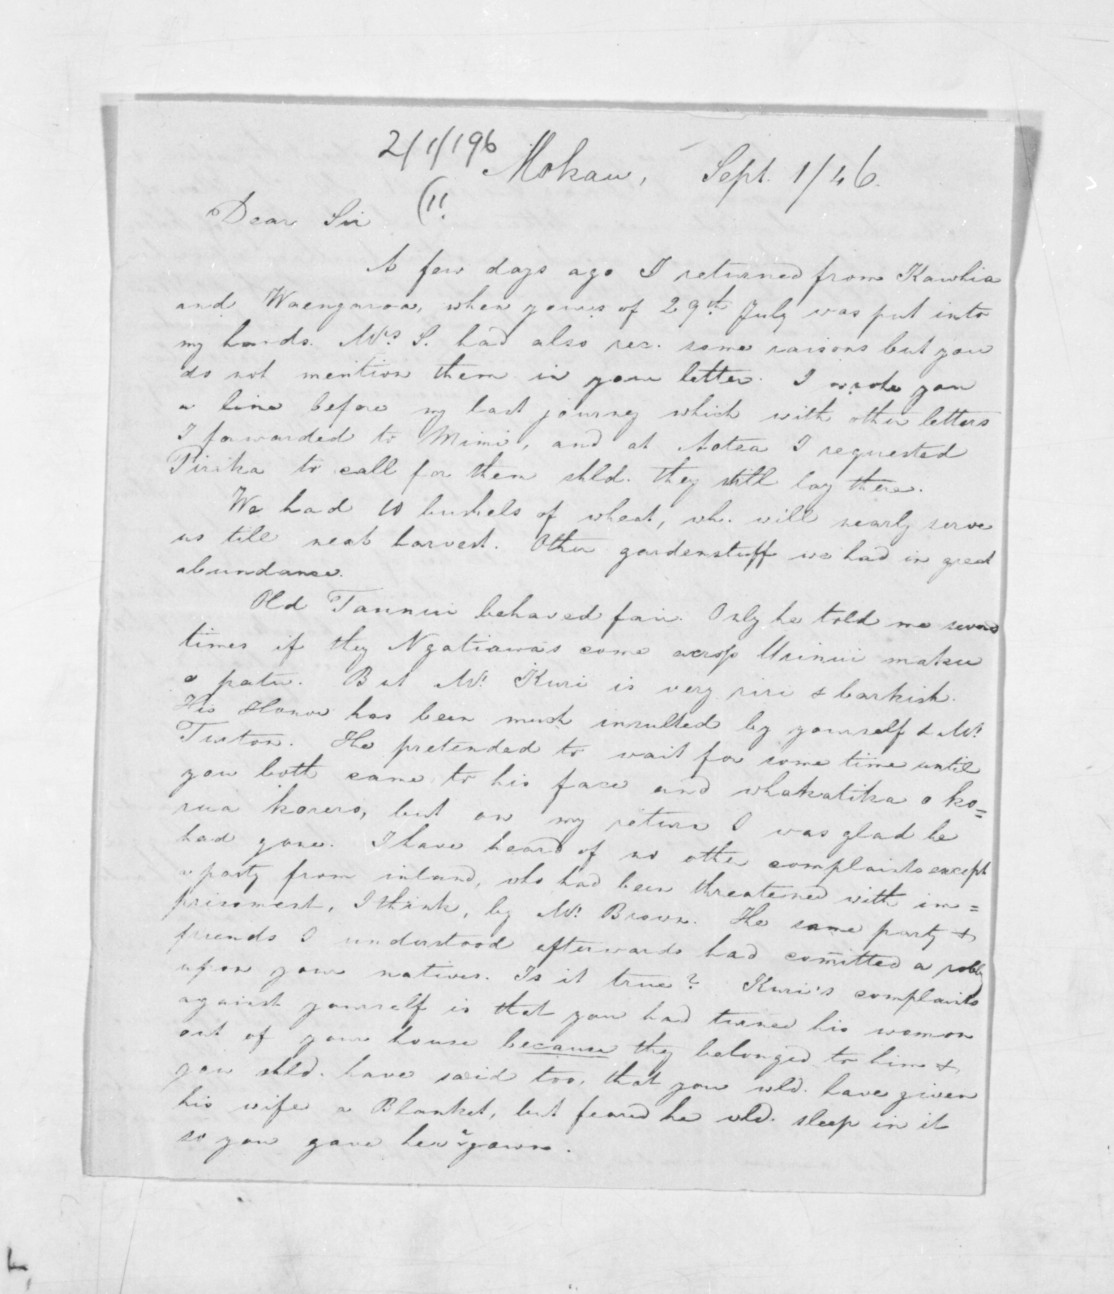 2/1/196
Mokau, Sept. 1/46.
(11.
Dear Sir
A few days ago I returned from Kawhia
and Waengaroa, when yours of 29th July was put into
my hands. Mrs S. had also rec. some raisons but you
do not mention them in your letter. I wrote you
a line before my last journey which with other letters
I forwarded to Mimi, and at Aotea I requested
Pirika to call for them shld. they still lay there.
We had 10 bushels of wheat, wh. will nearly serve
us till next harvest. Other gardenstuff we had in great
abundance.
Old Taunui behaved fair. Only he told me several
times if they Ngatiawa's come across Urinui maku
e patu. But Mr. Kuri is very riri & barkish.
His Honor has been much insulted by yourself & Mr.
Turton. He pretended to wait for some time until
you both came to his face and whakatika o ko=
rua korero, but on my return I was glad he
had gone. I have heard of no other complaints except
a party from inland, who had been threatened with im=
prisonment, I think, by Mr. Brown. The same party &
friends I understood afterwards had comitted a robby
upon your natives. Is it true? Kuri's complaints
against yourself is that you had turned his woman
out of your house because they belonged to him &
you shld. have said too, that you wld. have given
his wife a Blanket, but feared he wld. sleep in it
so you gave her a gown.